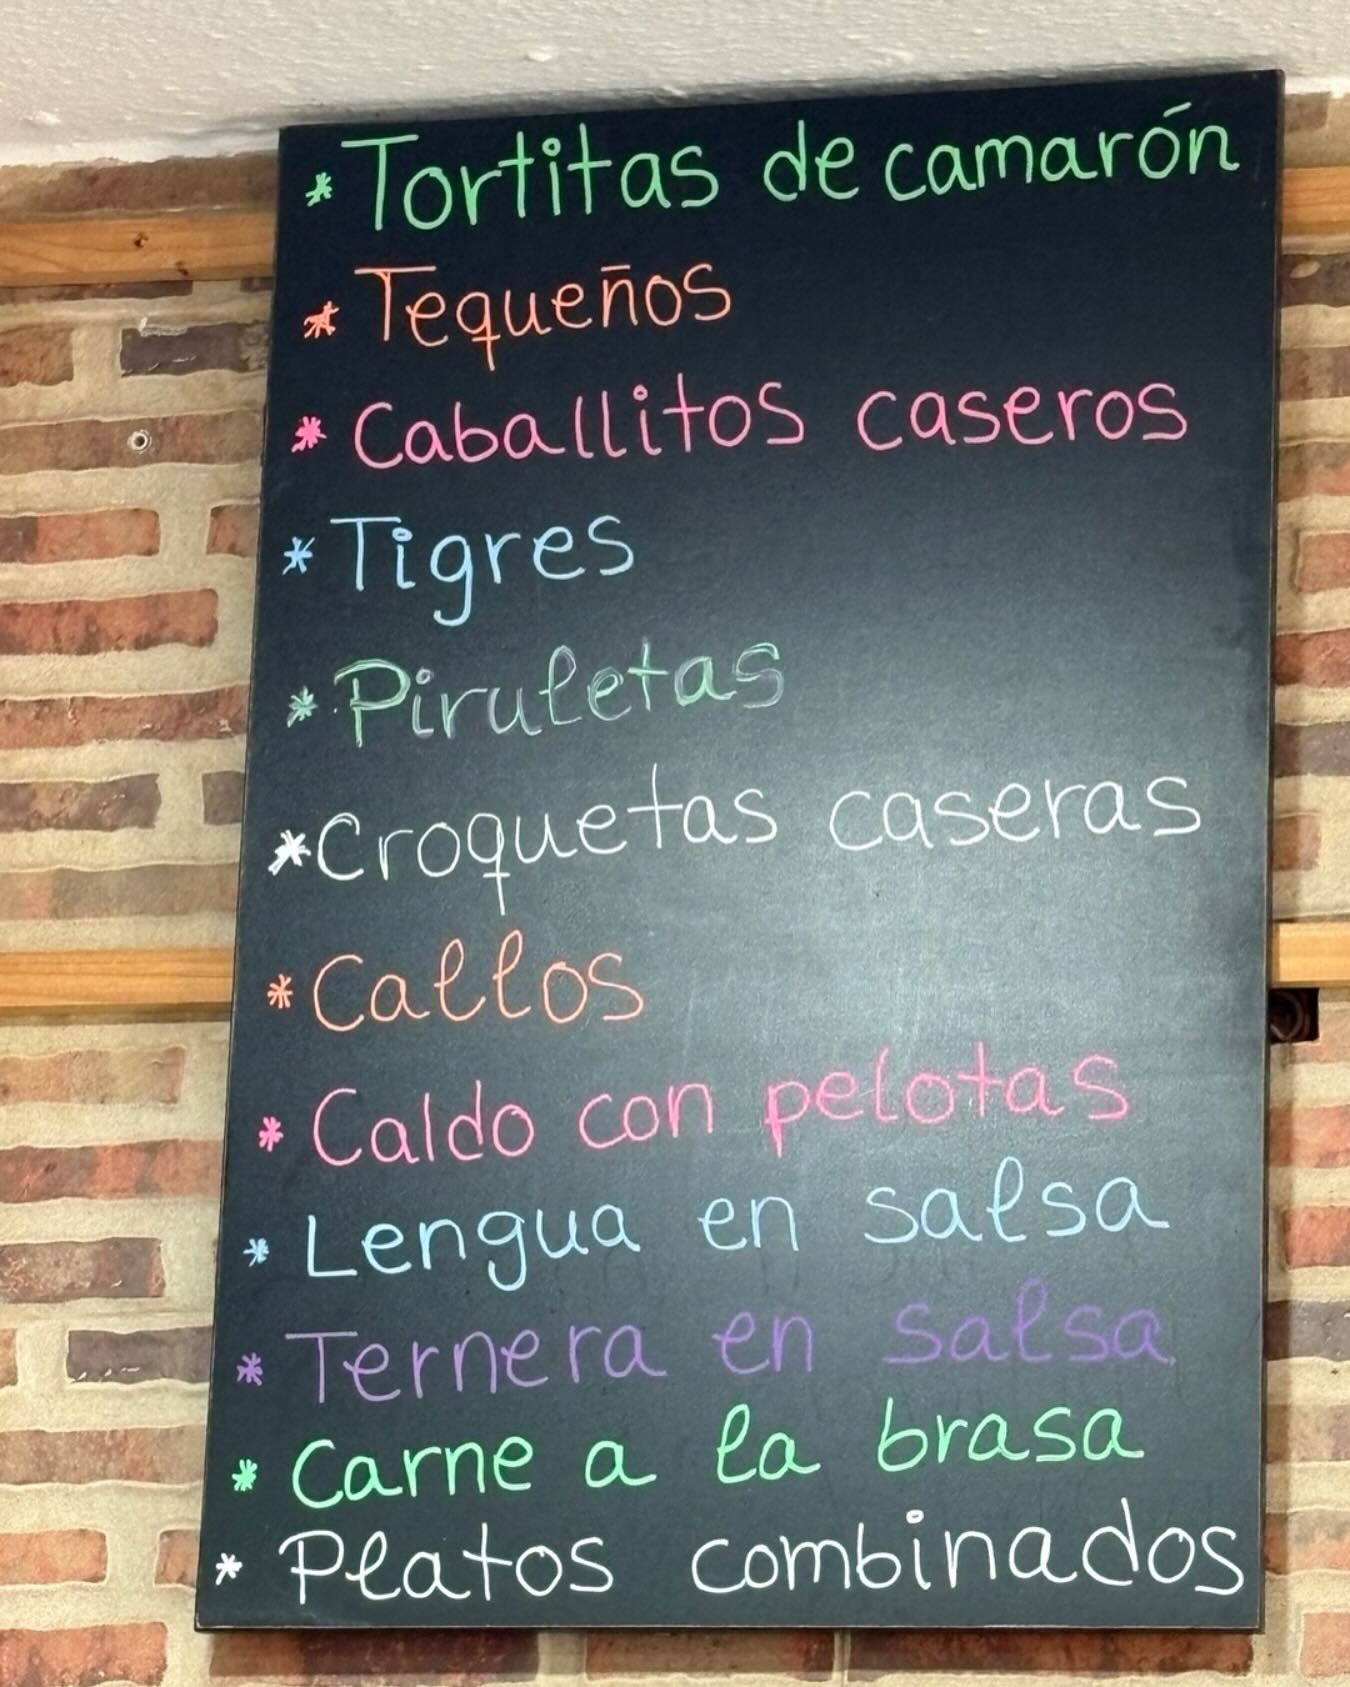 * Tortitas de camarón
* Tequeños
* Caballitos caseros
* Tigres
* Piruletas
* Croquetas caseras
* Callos
* Caldo con pelotas
* Lengua en salsa
* Ternera en salsa
* Carne a la brasa
* Platos combinados